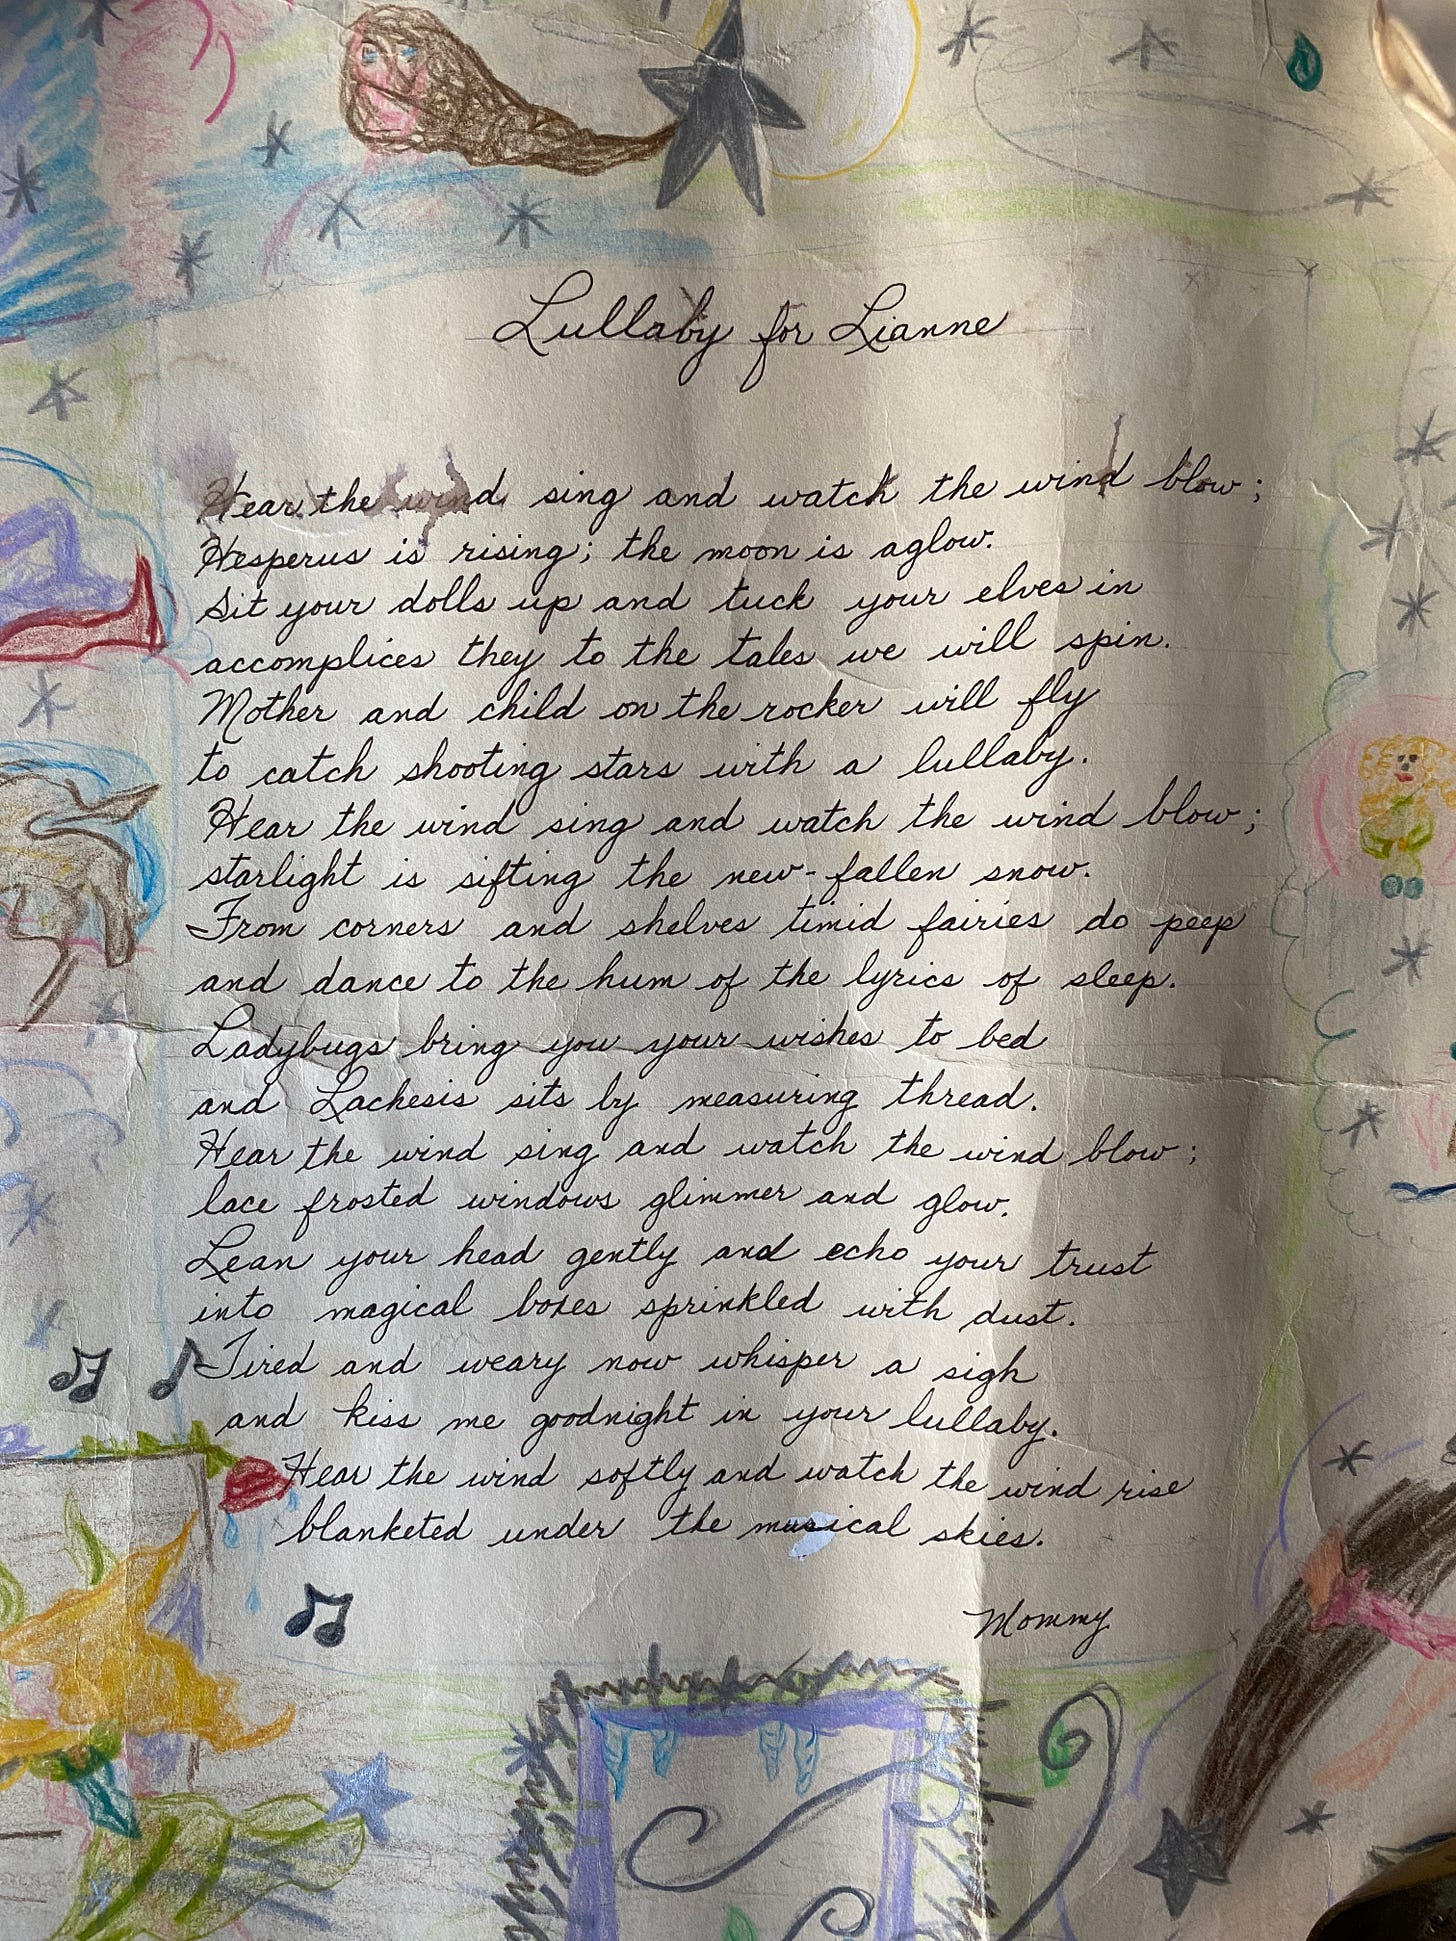 Lullaby for Lianne
Hear the wind sing and watch the wind blow;
Hesperus is rising; the moon is aglow.
Sit your dolls up and tuck your elves in
accomplices they to the tales we will spin.
Mother and child on the rocker will fly
to catch shooting stars with a lullaby.
Hear the wind sing and watch the wind blow;
starlight is sifting the new-fallen snow.
From corners and shelves timid fairies do peep
and dance to the hum of the lyrics of sleep.
Ladybugs bring you your wishes to bed
and Lachesis sits by measuring thread.
Hear the wind sing and watch the wind blow;
lace frosted windows glimmer and glow.
Lean your head gently and echo your trust
into magical boxes sprinkled with dust.
Tired and weary now whisper a sigh
and kiss me goodnight in your lullaby.
Hear the wind softly and watch the wind rise
blanketed under the musical skies.
Mommy